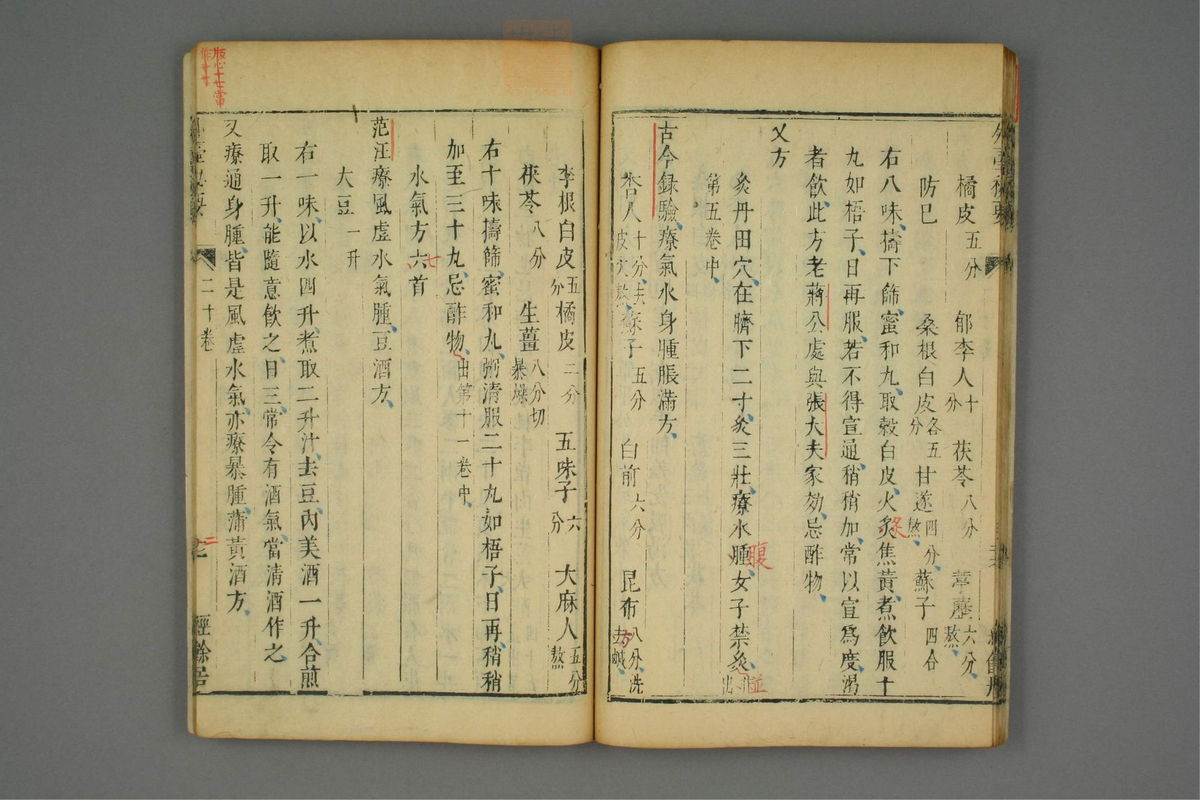 橘皮五分 郁李人十分 茯苓八分 葶藶六分熬
防巳 桑根白皮各五分 甘遂四分熬 蘇子四合
右八味擣下篩蜜和丸取穀白皮火炙焦黃煮飲服十
丸如梧子日再服若不得宣通稍稍加常以宣爲度渴
者飲此方老蔣公處與張大夫家効忌酢物
又方
灸丹田穴在臍下二寸灸三壯療水腫女子禁灸並出
第五卷中
古今録驗療氣水身腫脹滿方
杏人十分去皮尖熬 蘇子五分 白前六分 昆布八分洗去鹹
李根白皮五分 橘皮二分 五味子六分 大麻人五分熬
茯苓八分 生薑八分切暴燥
右十味擣篩蜜和丸粥清服二十丸如梧子日再稍稍
加至三十丸忌酢物出第十一卷中
水氣方六首
七
范汪療風虛水氣腫豆酒方
大豆一升
右一味以水四升煮取二升汁去豆內美酒一升合煎
取一升能隨意飲之日三常令有酒氣當清酒作之
又療通身腫皆是風虛水氣亦療暴腫蒲黃酒方
二十卷
經餘居
炙
腹
並
版心十七當
作二十七